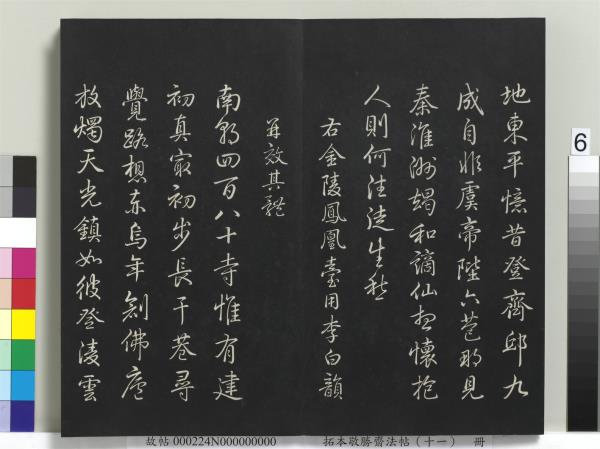 地東平憶昔登齊邱九
成自非虞帝陛六苞那見
秦淮洲蠍和謫仙寫懷抱
人則何注徒生愁
右金陵鳳凰臺用李白韻
并效其體
南朝四百八十寺惟有建
初真最初步長干巷尋
覺路想赤烏年剏佛廬
放燭天光鎮如彼登凌雲
6
故帖000224N000000000 拓本敬勝齋法帖(十一) 冊